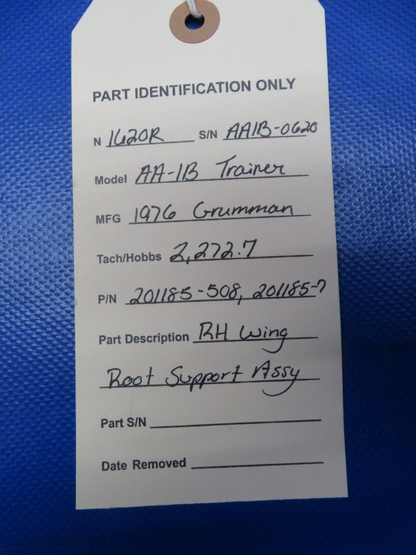 PART IDENTIFICATION ONLY
N 1620R S/N AA1B-0620
Model AA-1B Trainer
MFG 1976 Grumman
Tach/Hobbs 2,272.7
P/N 201185-508, 201185-7
Part Description RH Wing
Root Support Assy
Part S/N
Date Removed